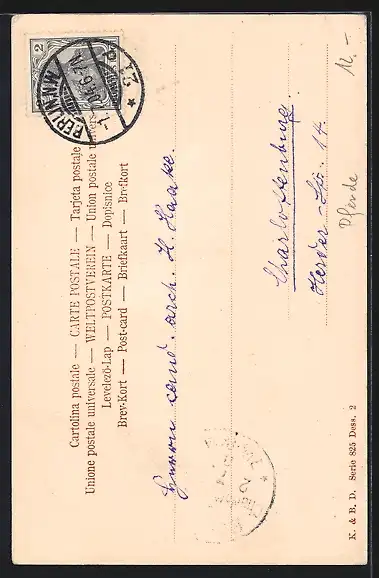 Cartolina postale — CARTE POSTALE — Tarjeta postale
Unione postale universale — WELTPOSTVEREIN — Union postale univers
Levelező-Lap — POSTKARTE — Dopisnice
Brev-Kort — Post-card — Briefkaart — Brefkort
2
BERLIN N.W.
Herrn cand. arch. H. Haake.
Charlottenburg
Herder-Str. 14.
Pferde
K. & B. D. Serie 825 Dess. 2